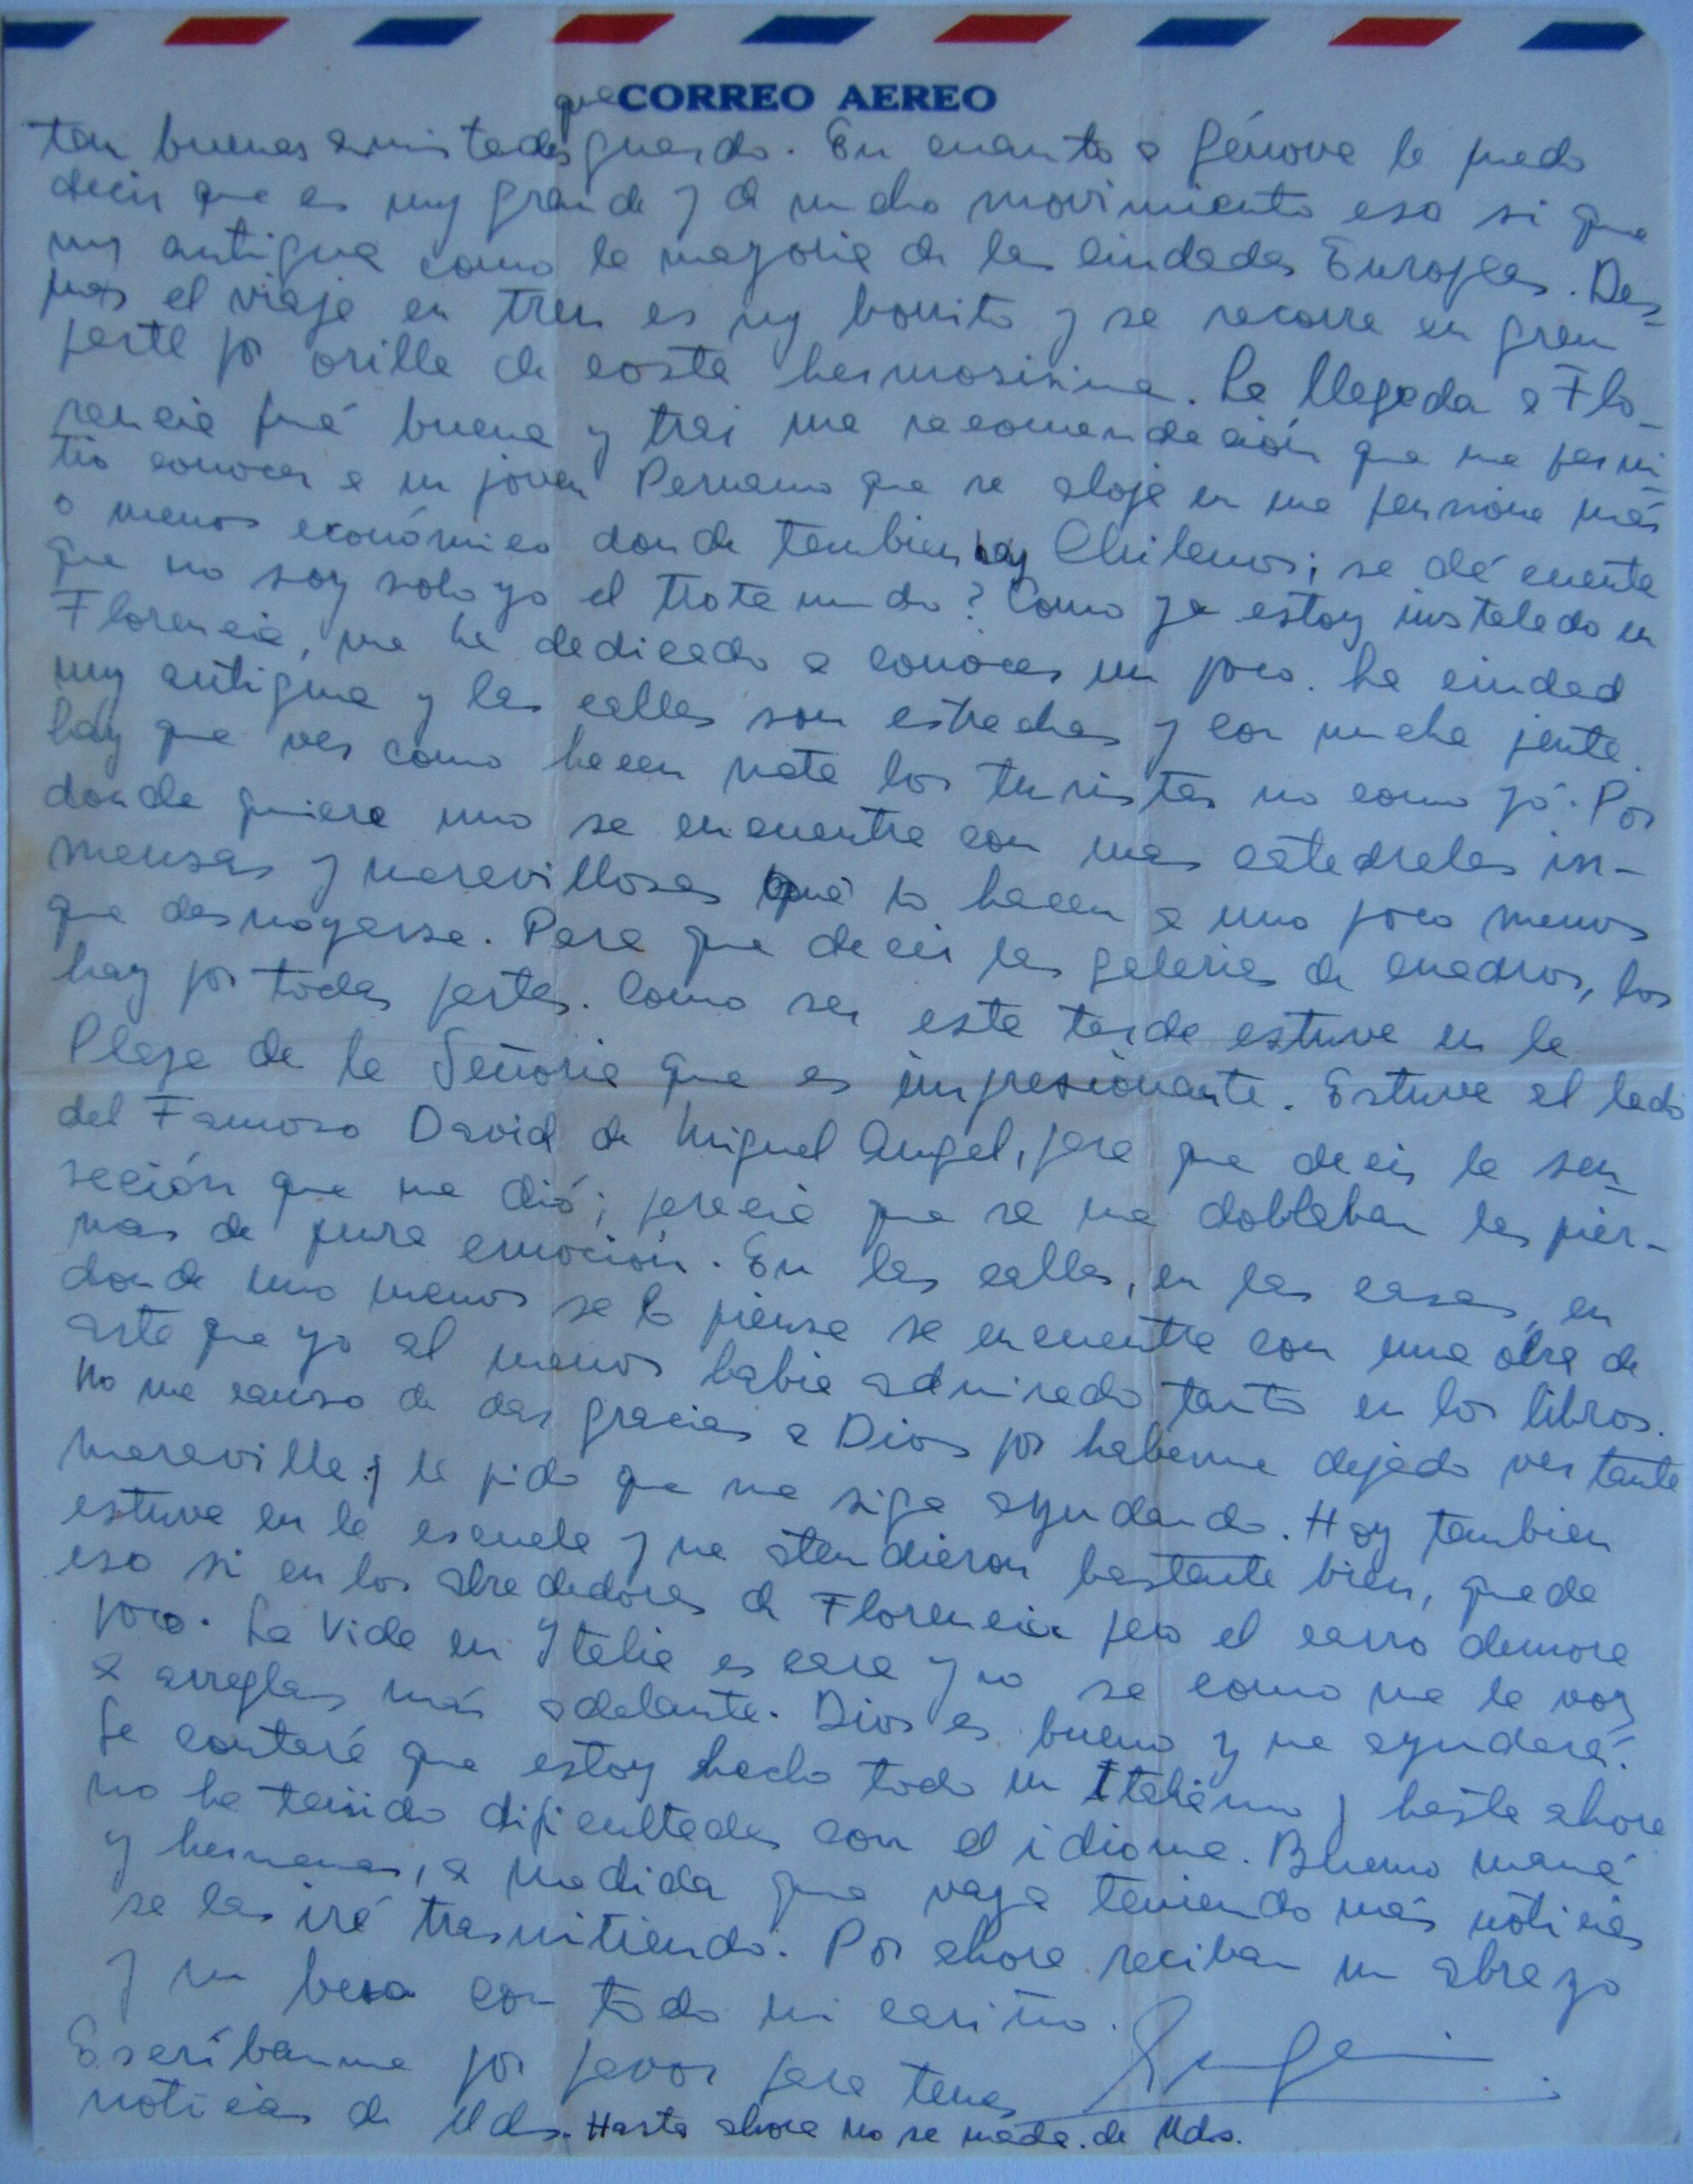 CORREO AEREO
que
tan buenas amistades guardo. En cuanto a Génova le puedo
decir que es muy grande y de mucho movimiento eso si que
muy antigua como la mayoria de las ciudades Europeas. Des-
pues el viaje en tren es muy bonito y se recorre en gran
parte por orilla de costa hermosisima. La llegada a Flo-
rencia fué buena y traí una recomendación que me permi-
tió conocer a un joven Peruano que se aloja en una pensione más
o menos económico donde tambien hay Chilenos; se dá cuenta
que no soy solo yo el trotamundo? Como ya estoy instalado en
Florencia, me he dedicado a conocer un poco. La ciudad
muy antigua y las calles son estrechas y con mucha jente.
hay que ver como hacen nata los turistas no como yó. Por
donde quiera uno se encuentra con unas catedrales in-
mensas y maravillosas que lo hacen a uno poco menos
que desmayarse. Para que decir las galerias de cuadros, los
hay por todas partes. Como ser esta tarde estuve en la
Plaza de la Señoria que es impresionante. Estuve al lado
del Famoso David de Miguel Angel, para que decir la sen-
sación que me dió; parecia que se me doblaban las pier-
nas de pura emoción. En las calles, en las casas, en
donde uno menos se lo piensa se encuentra con una obra de
arte que yo al menos habia admirado tanto en los libros.
No me canso de dar gracias a Dios por haberme dejado ver tanta
maravilla y le pido que me siga ayudando. Hoy tambien
estuve en la escuela y me atendieron bastante bien, queda
eso si en los alrededores de Florencia pero el carro demora
poco. La Vida en Italia es cara y no se como me la voy
a arreglar más adelante. Dios es bueno y me ayudará.
Le contaré que estoy hecho todo un Italiano y hasta ahora
no he tenido dificultades con el idioma. Bueno mamá
y hermanas, a medida que vaya teniendo más noticias
se las iré trasmitiendo. Por ahora reciban un abrazo
y un beso con todo mi cariño.
Escríbanme por favor para tener
noticias de Uds. Hasta ahora no se nada de Uds.